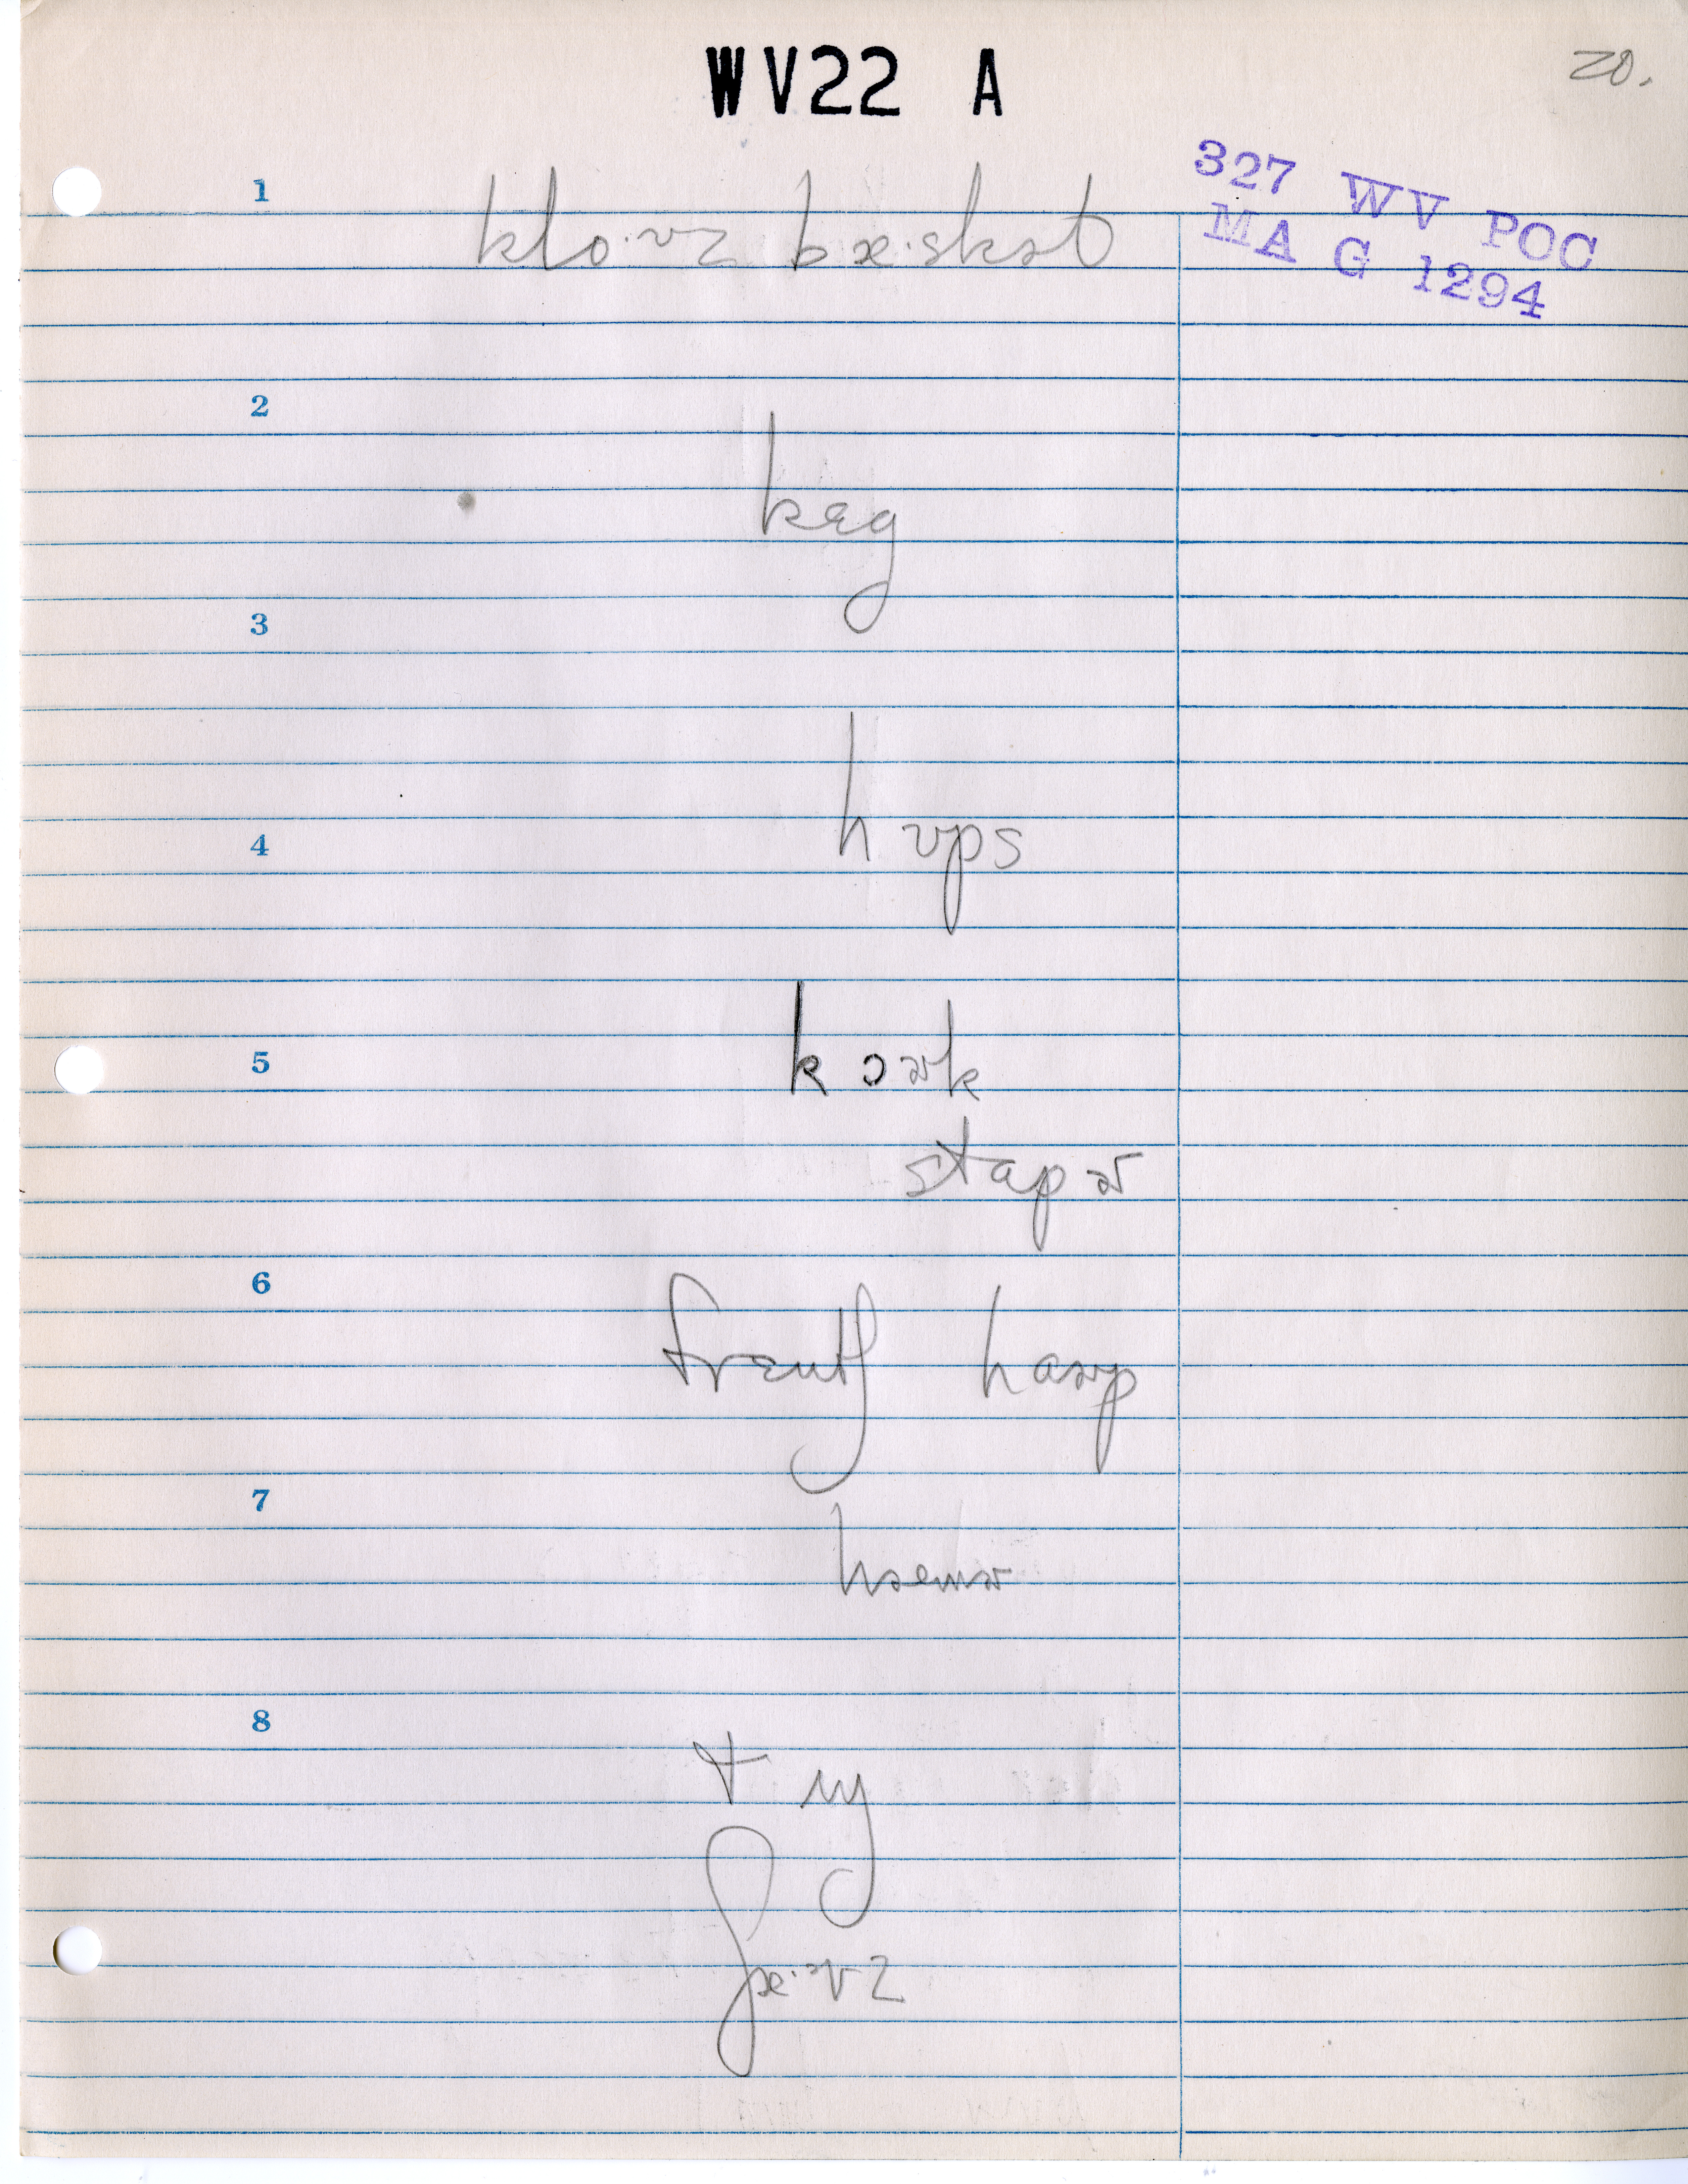 WV22 A
20.
327 WV POC
MA G 1294
1
klo·ᵊvz bæ·skət
2
kɛg
3
hʊps
4
5
kɔɚk
stapɚ
6
frɛntʃ haɚp
7
hæmɚ
8
tʌŋ
ʃæ·ᵊvz